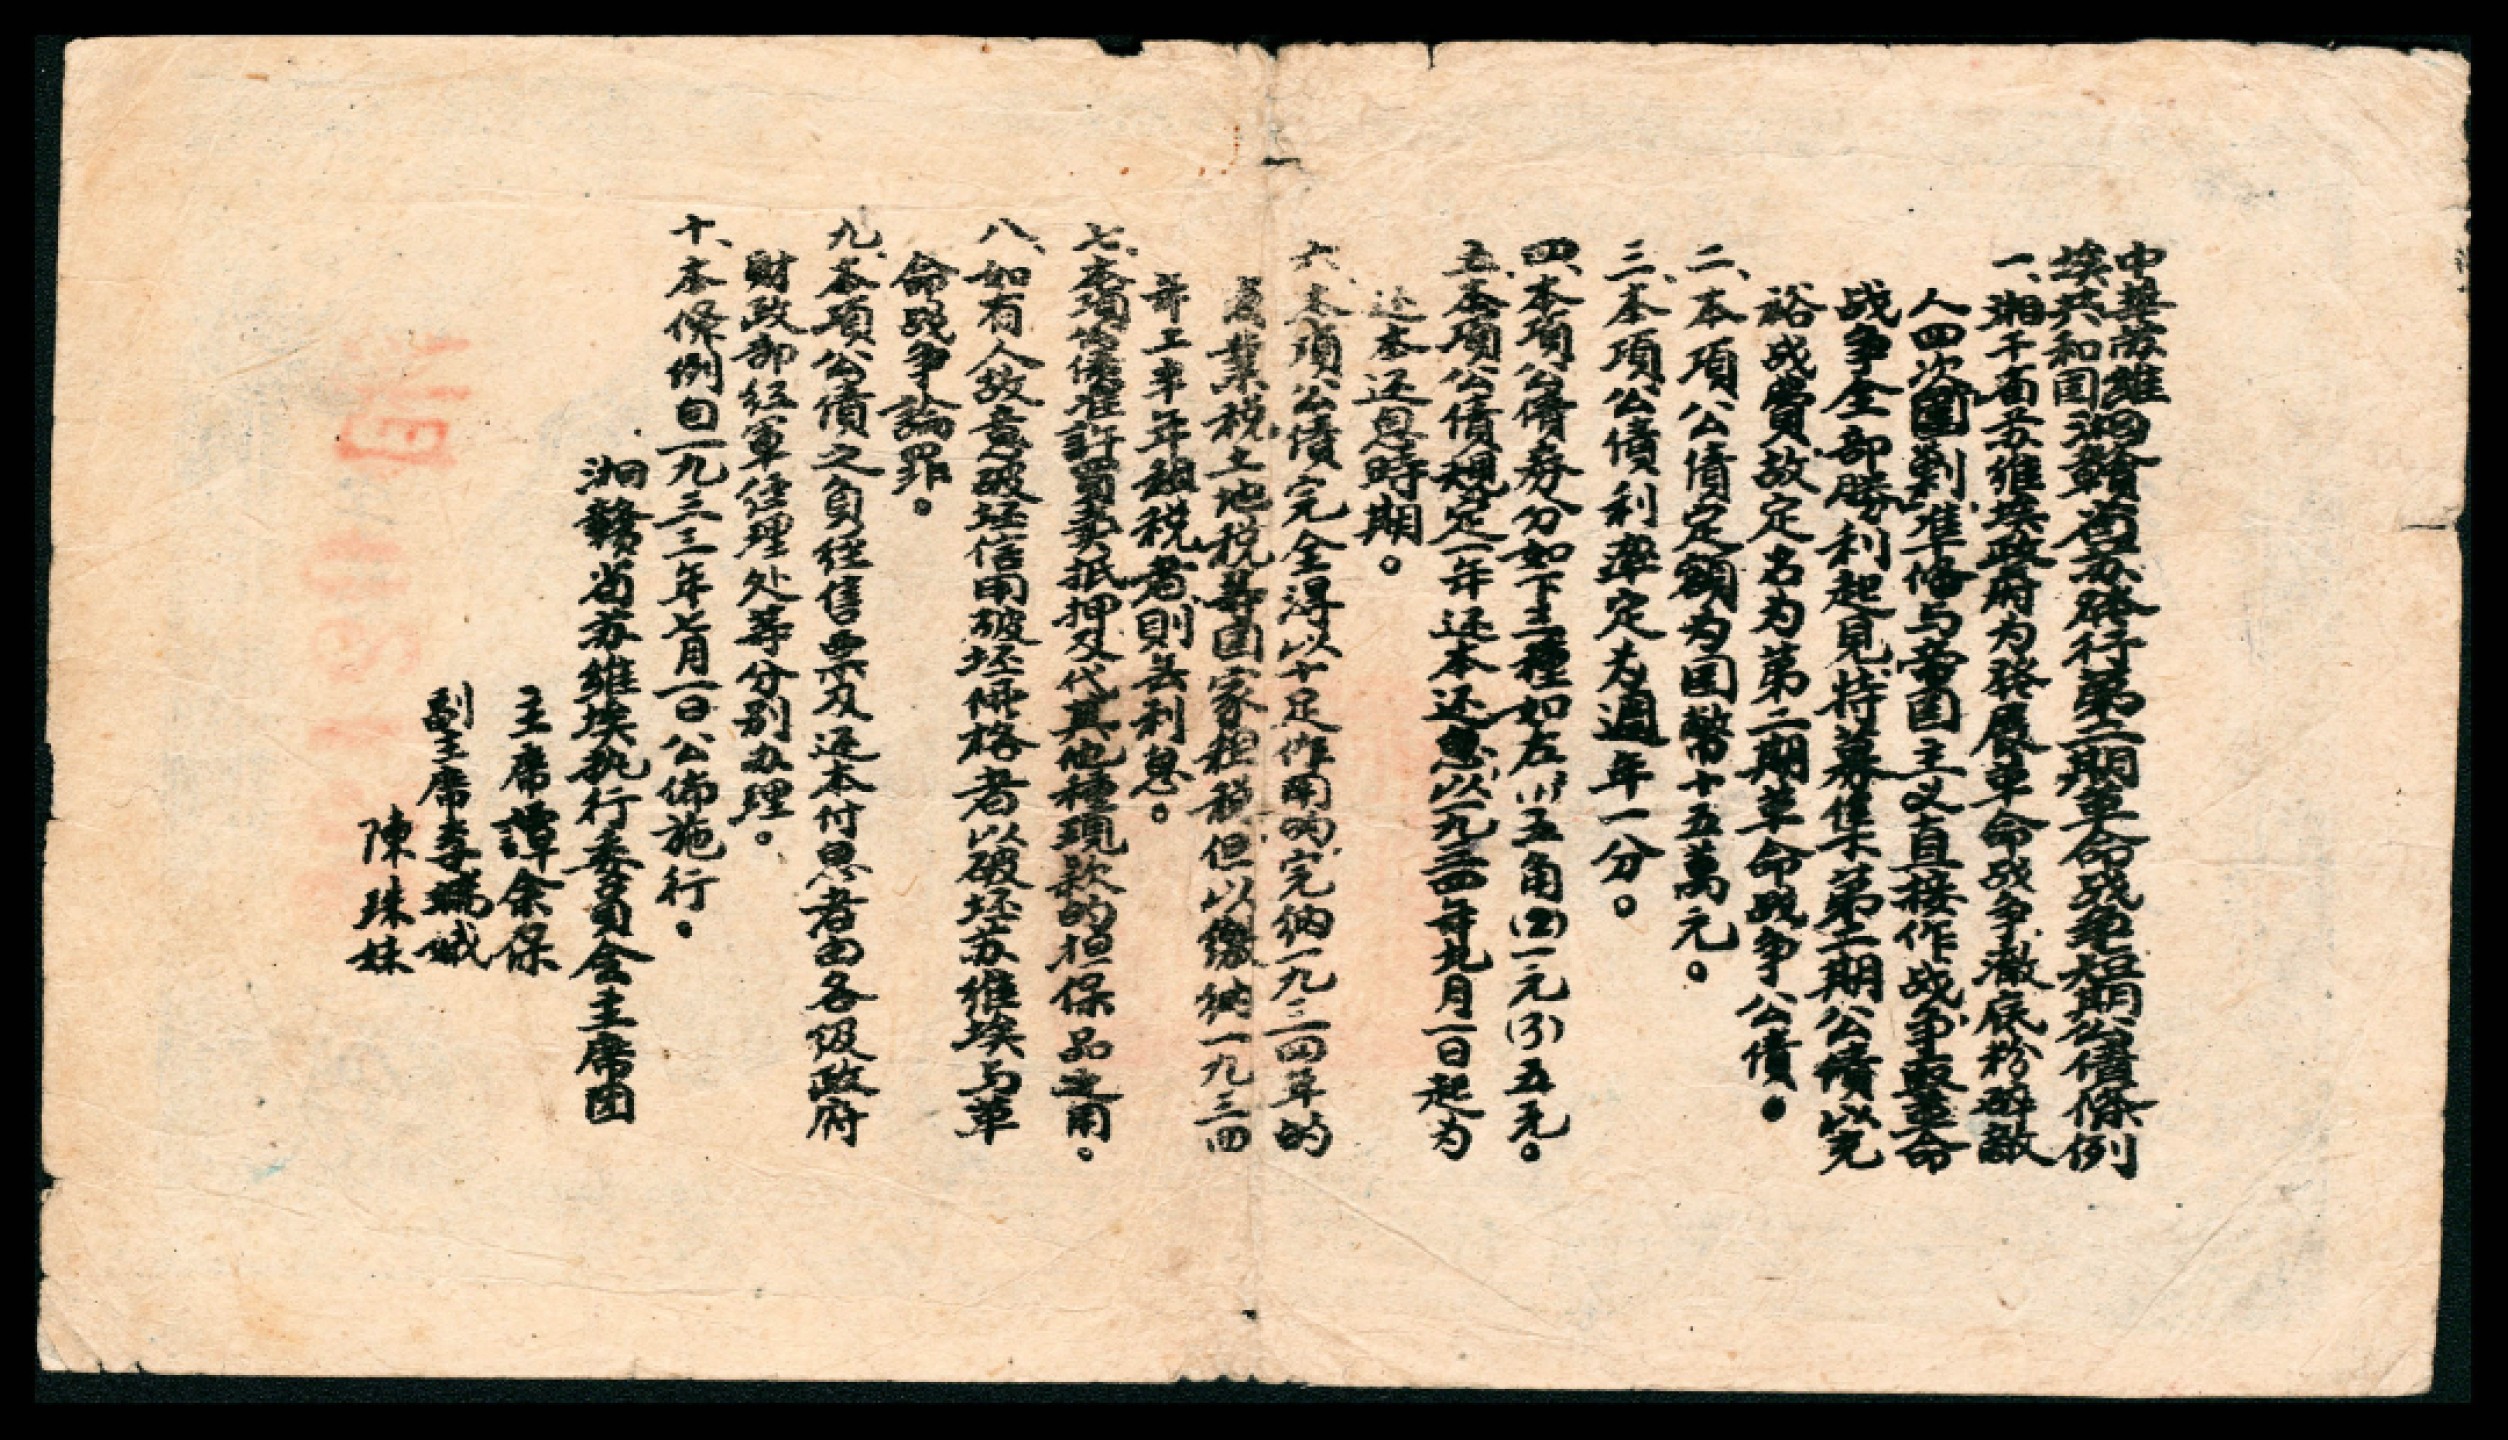 中華苏維
埃共和国湘贛省苏發行第二期革命战争短期公債條例
一、湘干省苏維埃政府为發展革命战争澈底粉碎敵
人四次圍剿准俻与帝国主义直接作战争取革命
战争全部勝利起見特募集第二期公債以充
裕战費故定名为第二期革命战争公債。
二、本項公債定額为国幣十五萬元。
三、本項公債利率定为週年一分。
四、本項公債券分如下三種如左(1)五角(2)一元(3)五元。
五、本項公債規定一年还本还息以一九三四年九月一日起为
还本还息時期。
六、本項公債完全得以十足作用的完納一九三四年的
業税土地税等国家租税但以繳納一九三四
年租税者則無利息。
七、本項公債准許買卖抵押及代其他種現款的担保品之用。
八、如有人故意破坯信用破坯價格者以破坯苏維埃与革
命战争論罪。
九、本項公債之負任售票及还本付息者由各级政府
財政部红軍经理处等分别办理。
十、本條例自一九三三年七月一日公佈施行。
湘贛省苏維埃执行委員会主席团
主席譚余保
副主席李端娥
陳珠妹